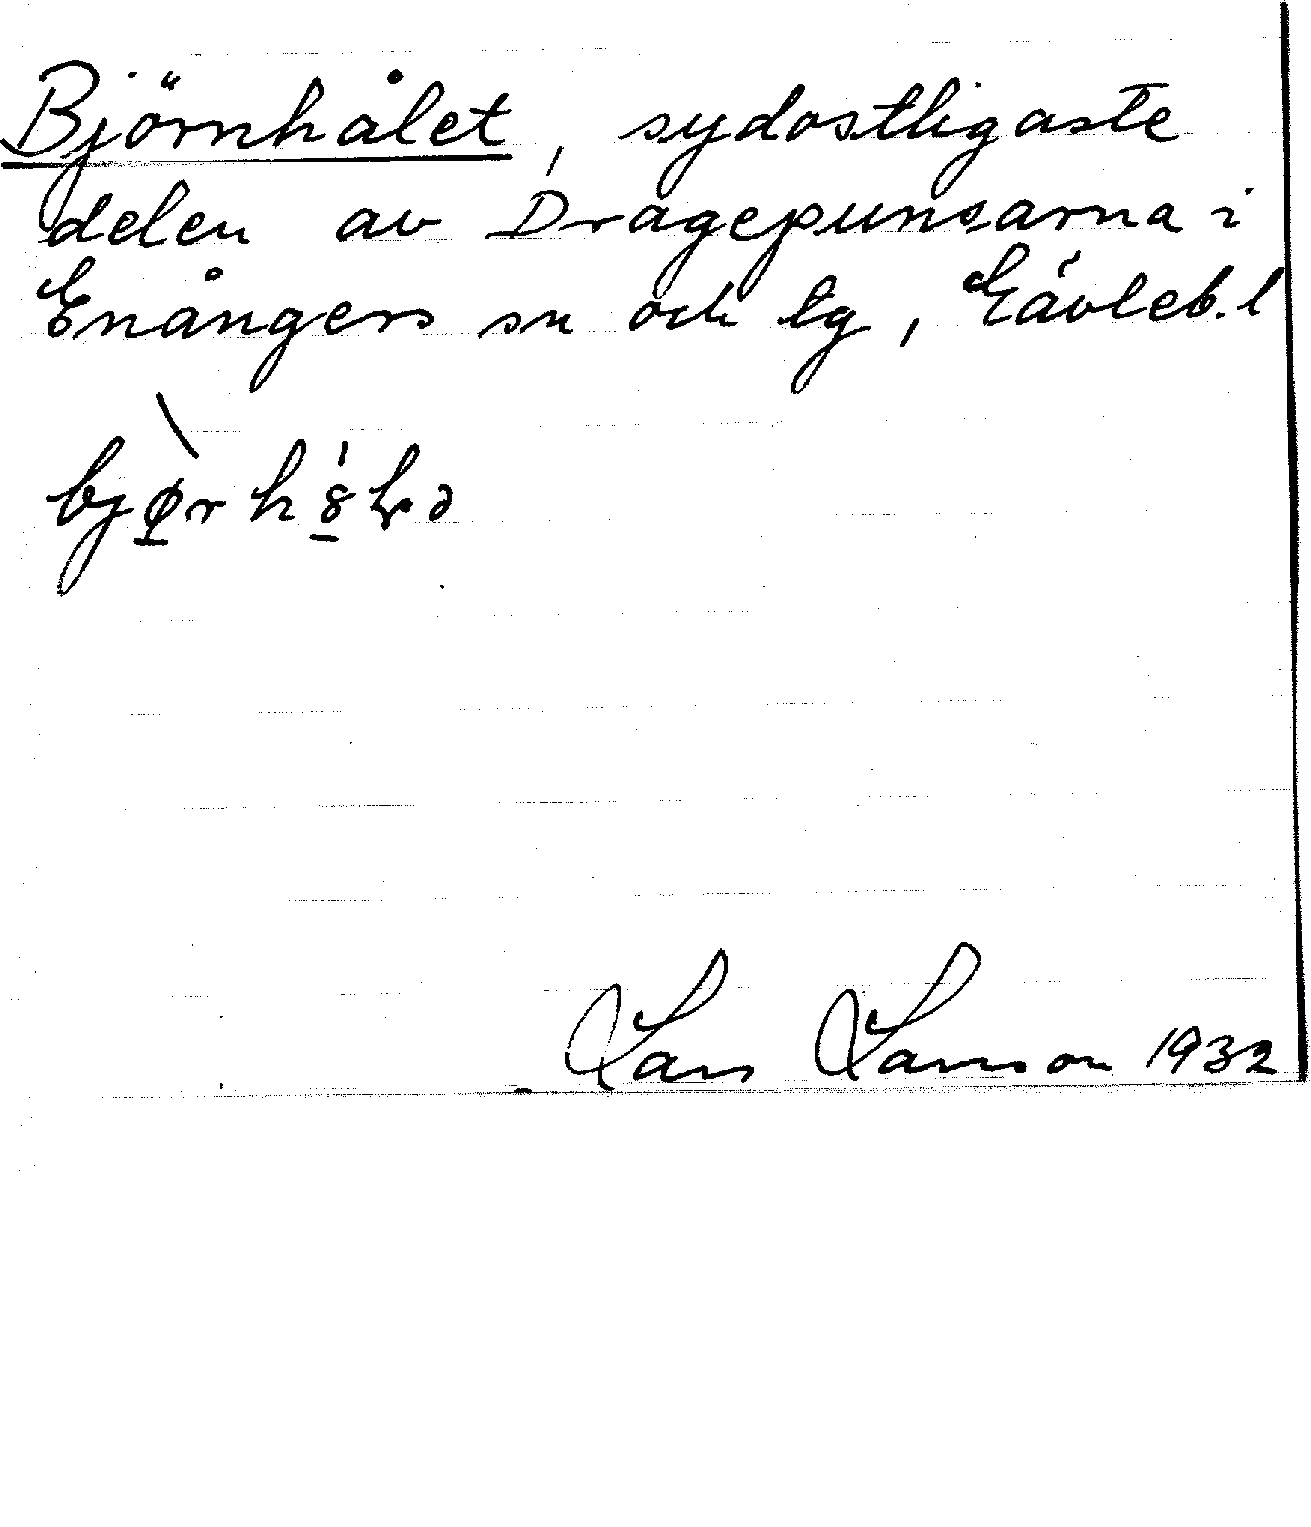 Björnhålet, sydostligaste
delen av Dragepunsarna i
Enångers sn och tg, Gävleb. l
bjørh
Lars Larsson 1932